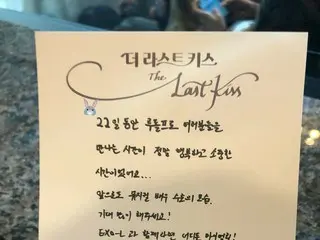 더 라스트 키스
The Last Kiss
22일 동안 루돌프로 여러분들을
만나는 시간이 정말 행복하고 소중한
시간이었어요...
앞으로도 뮤지컬 배우 수호의 모습,
기대 많이 해주세요!
EXO-L 과 함께라면